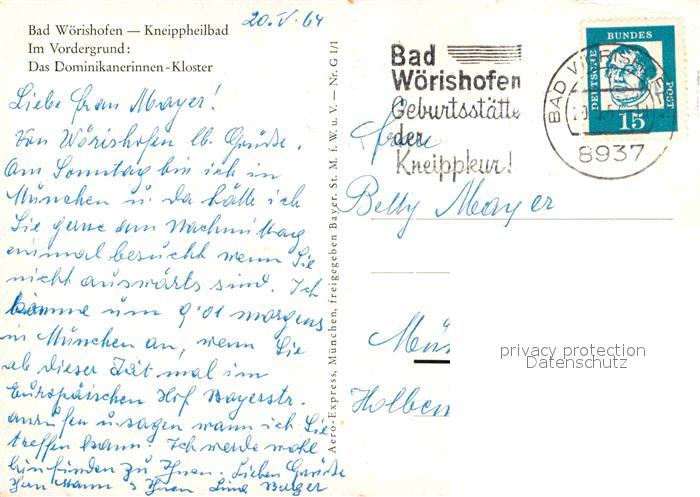 20.V.64
Bad Wörishofen — Kneippheilbad
Im Vordergrund:
Das Dominikanerinnen-Kloster
Liebe Frau Mayer!
Von Wörishofen lb. Grüße.
Am Sonntag bin ich in
München u. da hätte ich
Sie gerne am Nachmittag
einmal besucht wenn Sie
nicht auswärts sind. Ich
komme um 9'01 morgens
in München an, wenn Sie
ab dieser Zeit mal im
Europäischen Hof Bayerstr.
anrufen u. sagen wann ich Sie
treffen kann. Ich werde wohl
hinfinden zu Ihnen. Lieben Grüße
Ihrem Mann & Ihnen Berger
Aero-Express, München, freigegeben Bayer. St. M. f. W. u. V. — Nr. G 1/1
Bad
Wörishofen
Geburtsstätte
der
Kneippkur!
BAD WÖRISHOFEN
8937
DEUTSCHE
BUNDES
POST
15
Betty Mayer
Mün
Holben
privacy protection
Datenschutz